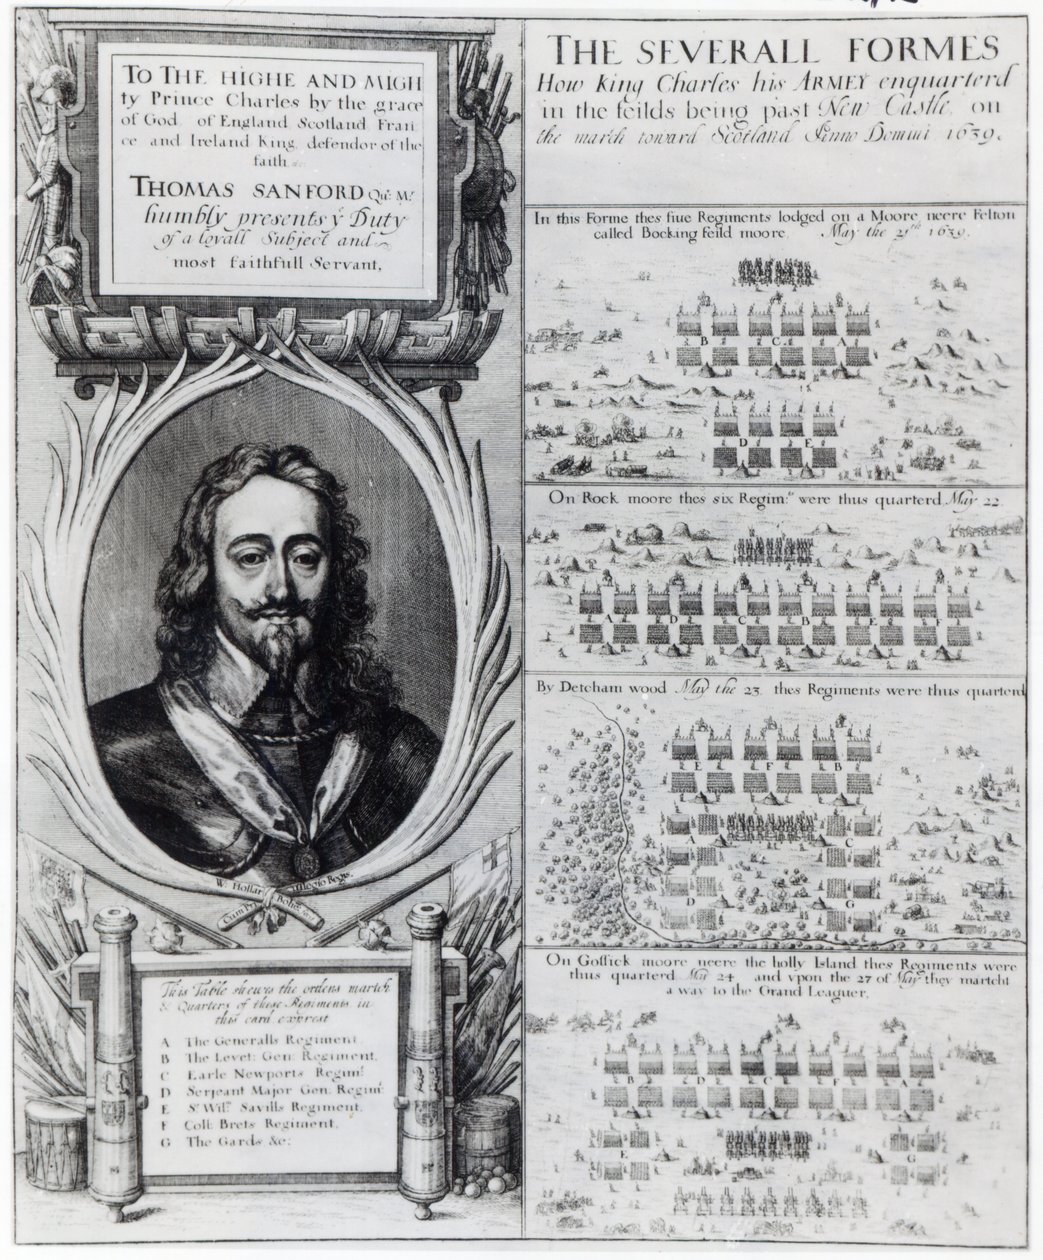 TO THE HIGHE AND MIGH
ty Prince Charles by the grace
of God, of England Scotland Fran
ce and Ireland King, defendor of the
faith &c.
THOMAS SANFORD Qr. Mr.
humbly presents ye Duty
of a loyall Subject and
most faithfull Servant,
W. Hollar
Bohe:
This Table shewes the orders march
& Quarters of these Regiments in
this card exprest
A The Generalls Regiment.
B The Levet: Gen: Regiment.
C Earle Newports Regimt.
D Serjeant Major Gen. Regimt.
E Sr. Wilm Savills Regiment.
F Coll: Brets Regiment.
G The Gards &c:
THE SEVERALL FORMES
How King Charles his ARMEY enquarterd
in the feilds being past New Castle, on
the march toward Scotland Anno Domini 1639.
In this Forme thes fiue Regiments lodged on a Moore neere Felton
called Bocking feild moore. May the 21th 1639.
B C A
D E
On Rock moore thes six Regimts. were thus quarterd May 22.
A D C B E F
By Detcham wood May the 23. thes Regiments were thus quarterd
E F B
A C
D G
On Goffick moore neere the holly Island thes Regiments were
thus quarterd May 24 and vpon the 27 of May they martcht
a way to the Grand Leaguer.
B D C F A
E G